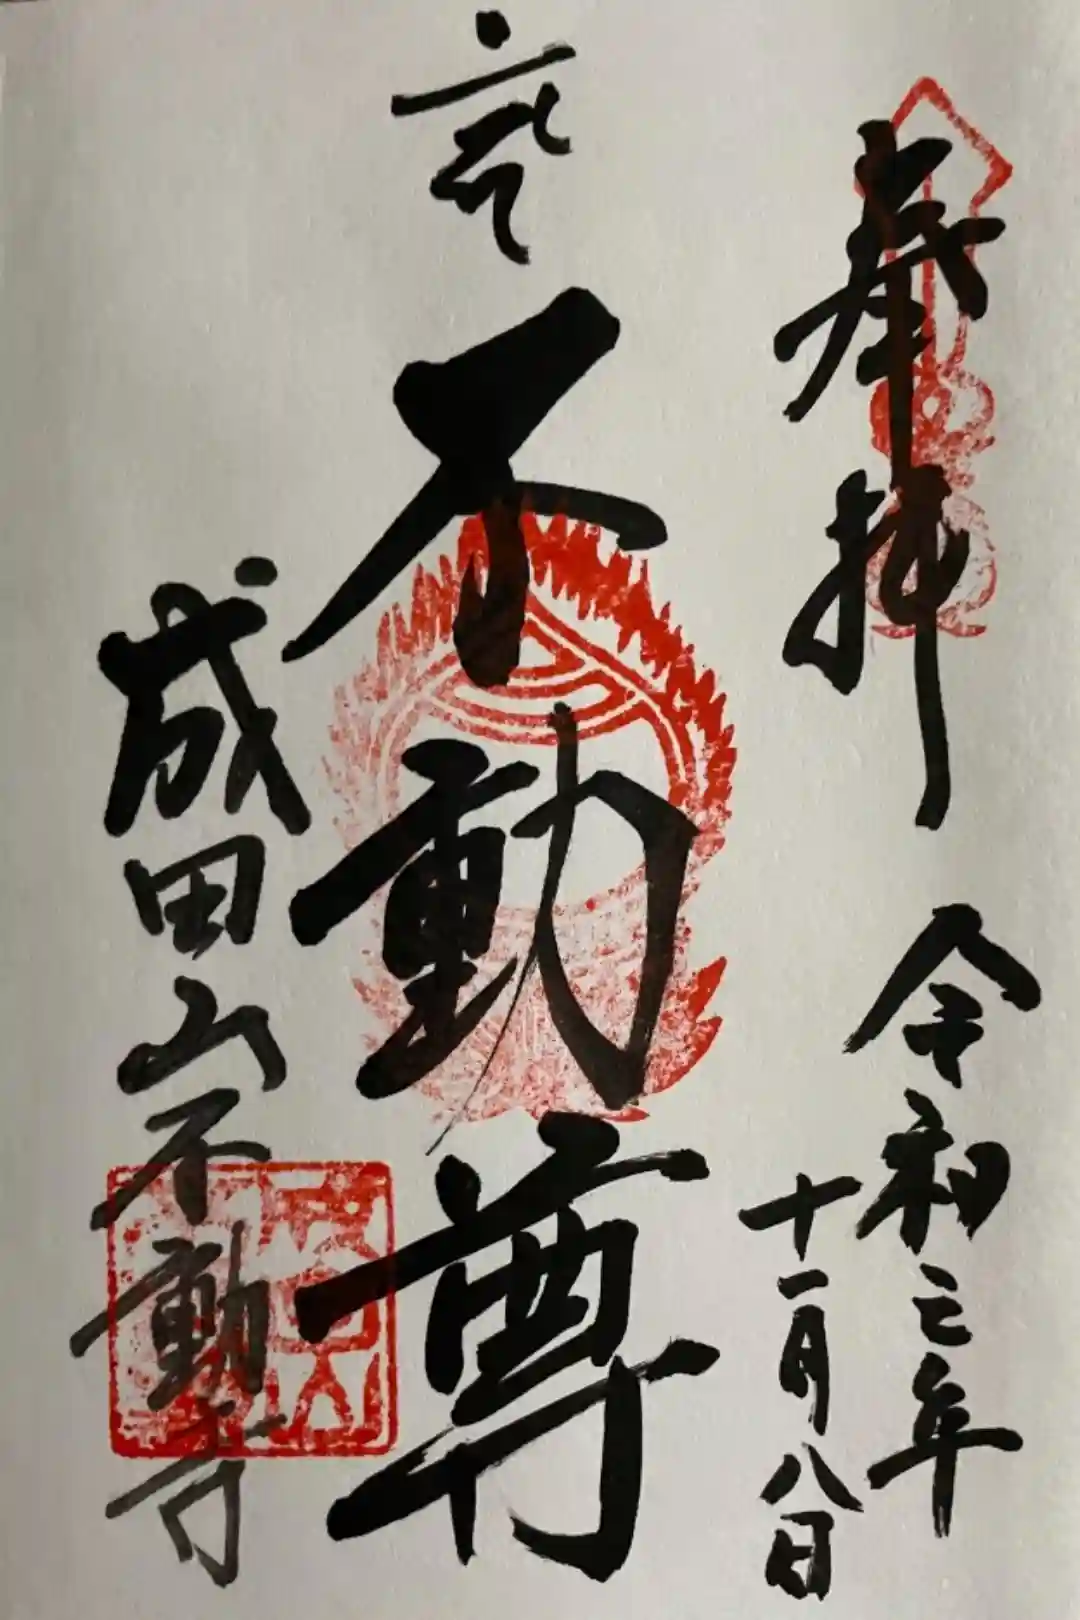 奉拝 令和三年
十一月八日
不動尊
成田山不動寺